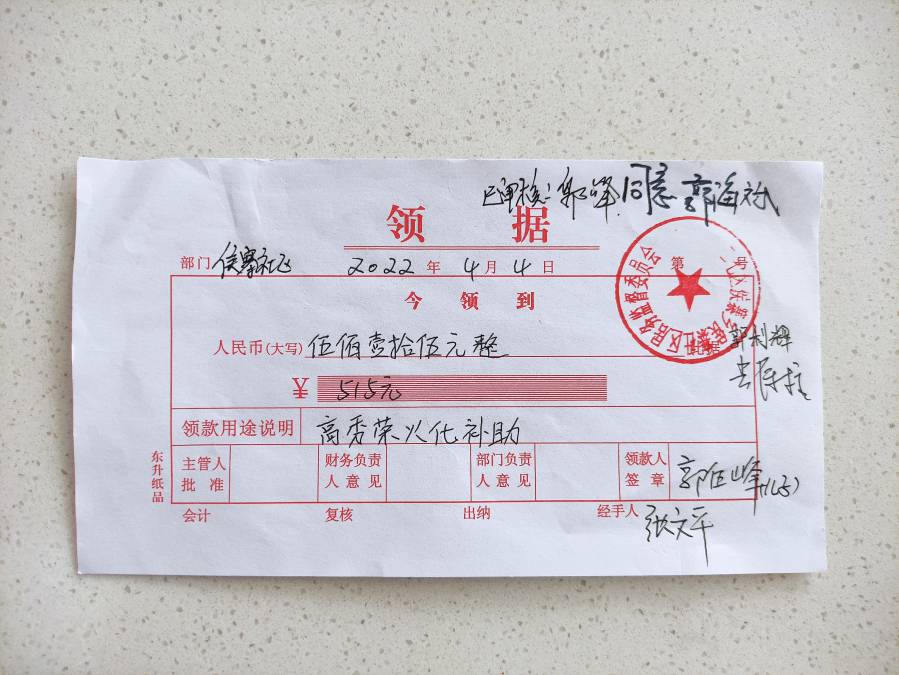 已审核：郭峰 同意
领 据
部门 侯寨社区 2022 年 4 月 4 日 第 号
今 领 到
人民币(大写) 伍佰壹拾伍元整 此据
¥ 515元
郭利辉
领款用途说明 高秀荣火化补助
主管人批准 财务负责人意见 部门负责人意见 领款人签章 郭伍峰(儿子)
会计 复核 出纳 经手人 张文平
东升纸品